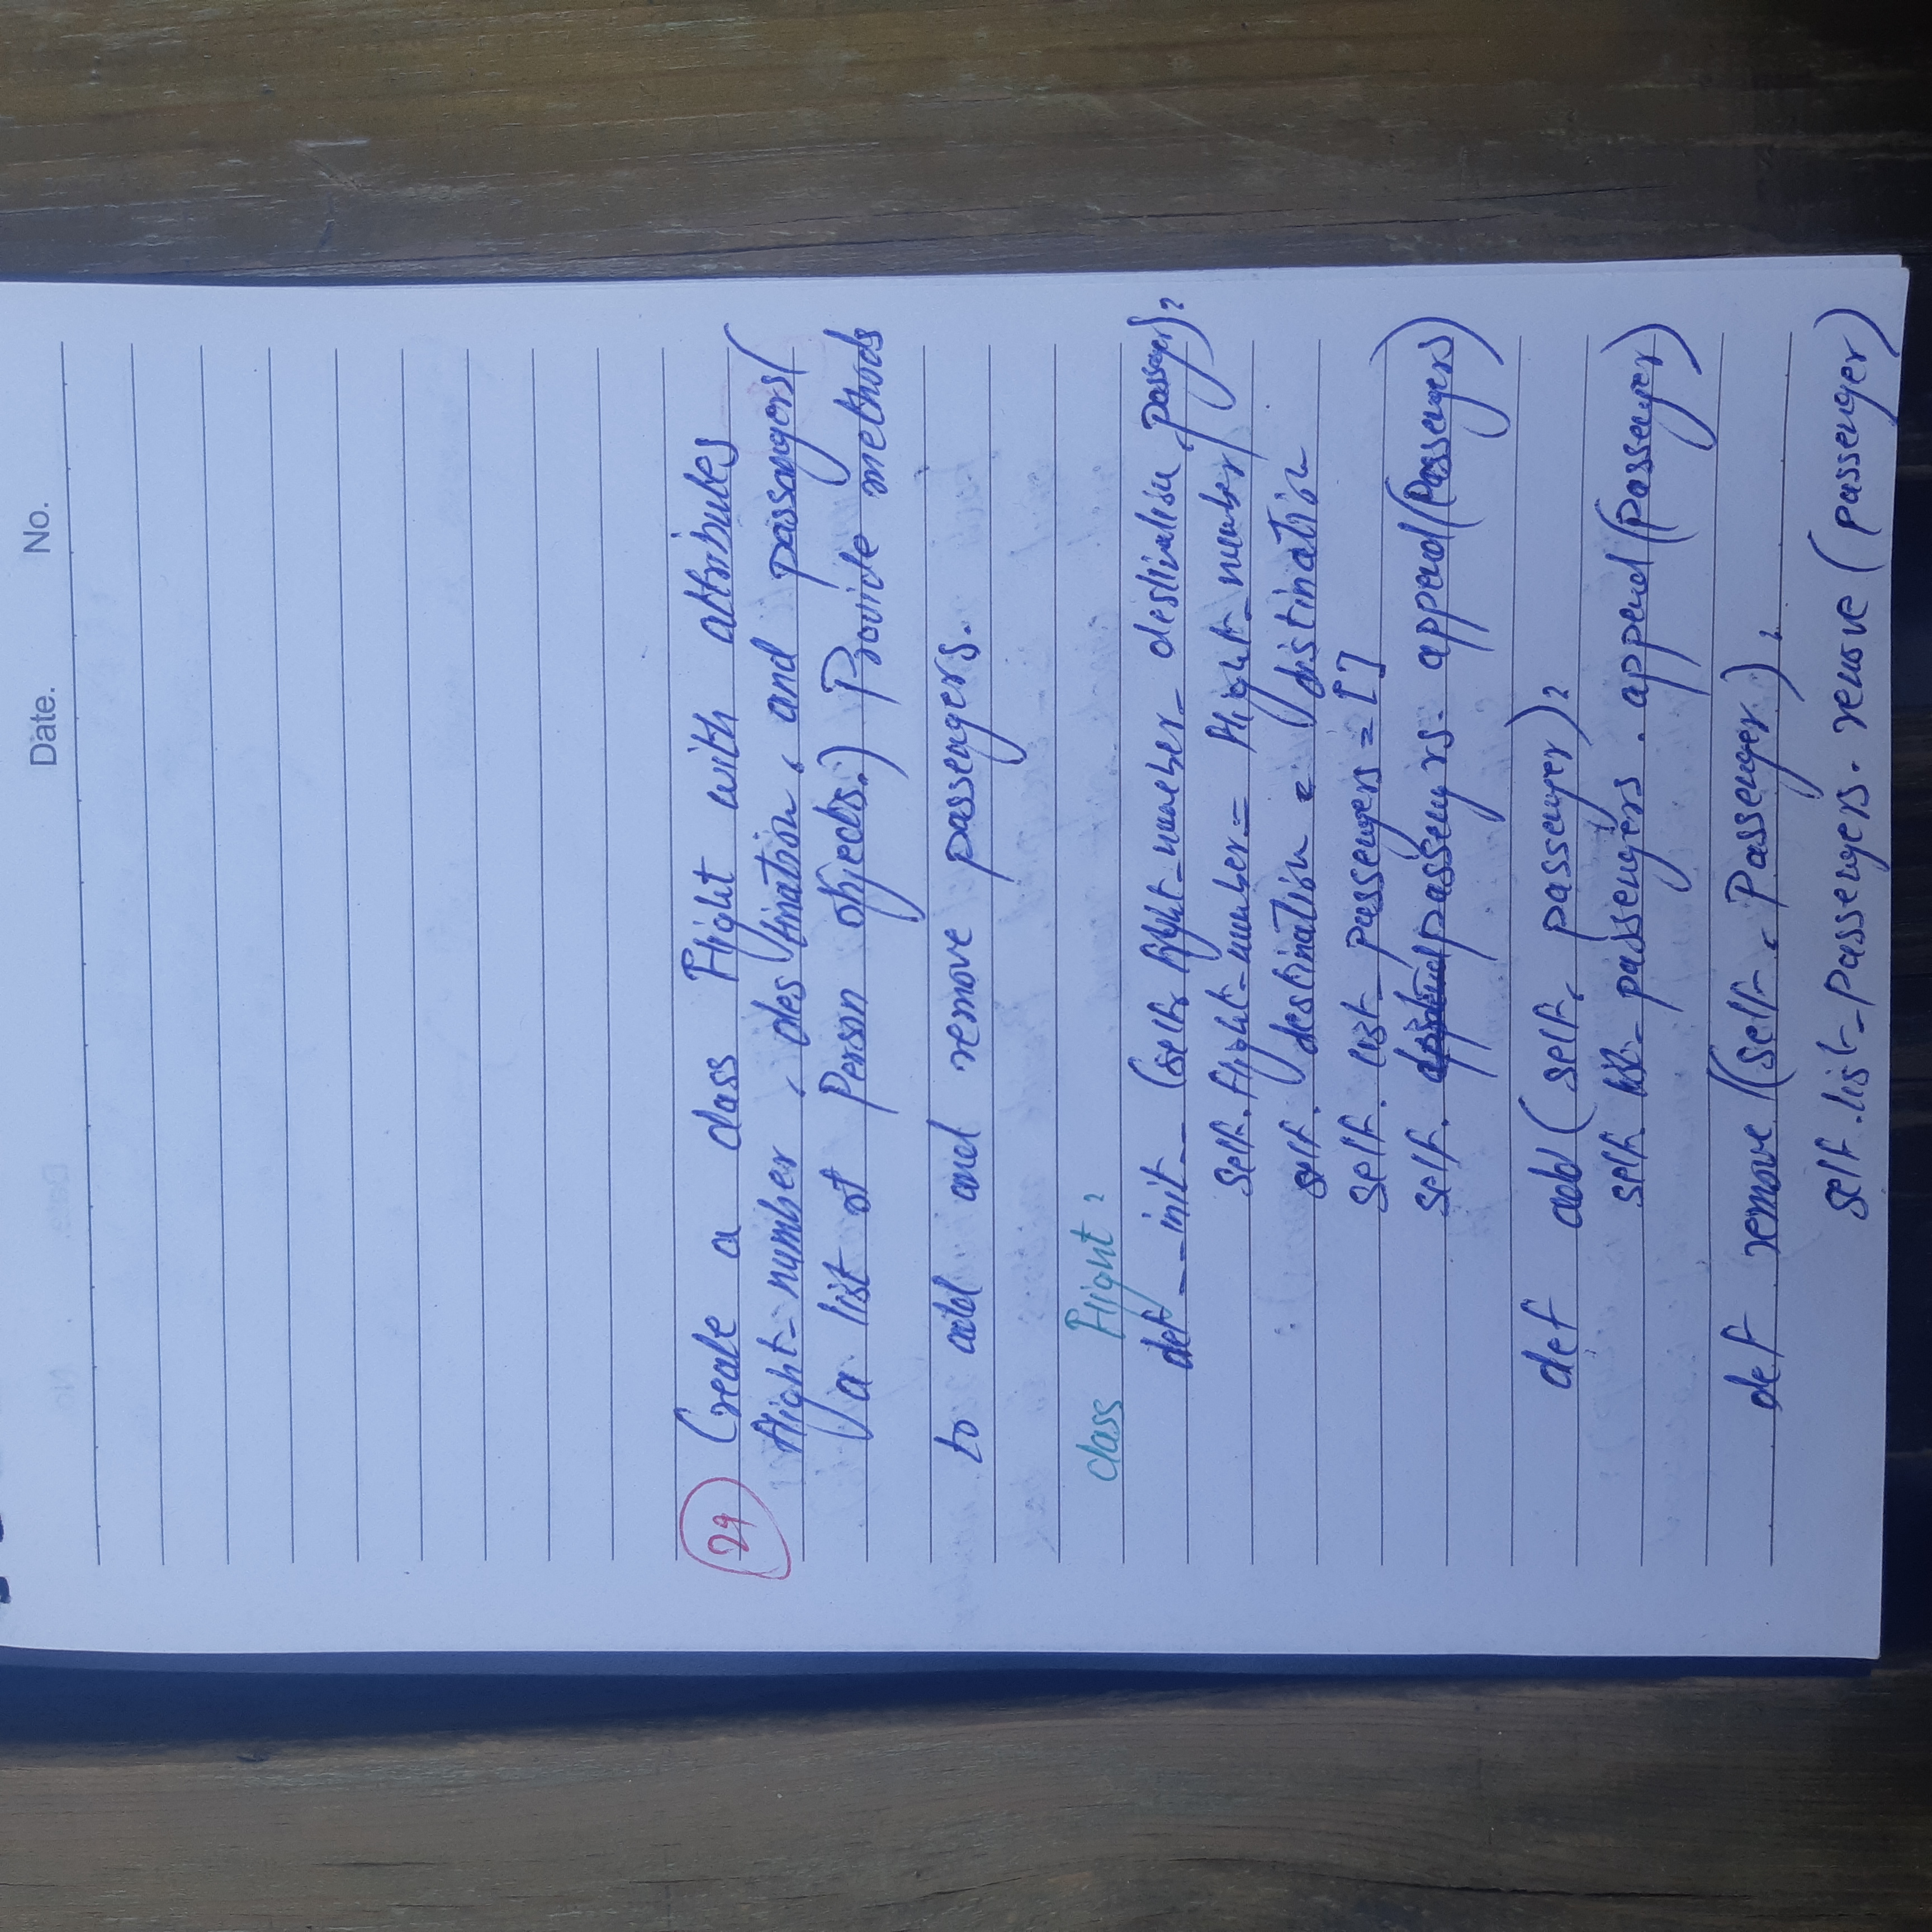 Date. No.
29 Create a class Flight with attributes
flight-number, destination, and passangers(
a list of Person objects.) Provide methods
to add and remove passengers.
class Flight:
def __init__ (self, flight-number- destination, passengers):
self.flight-number = flight-number
self. destination = distination
self. list-passengers = []
self. passengers. append(Passengers)
def add(self, passenger):
self. list-passengers. append(Passenger)
def remove(self, Passenger):
self.list-Passengers. remove (passenger)